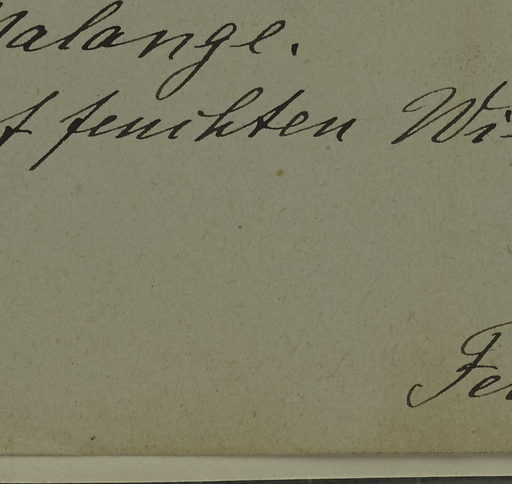 Malange.
f feuchten Wi
Fe